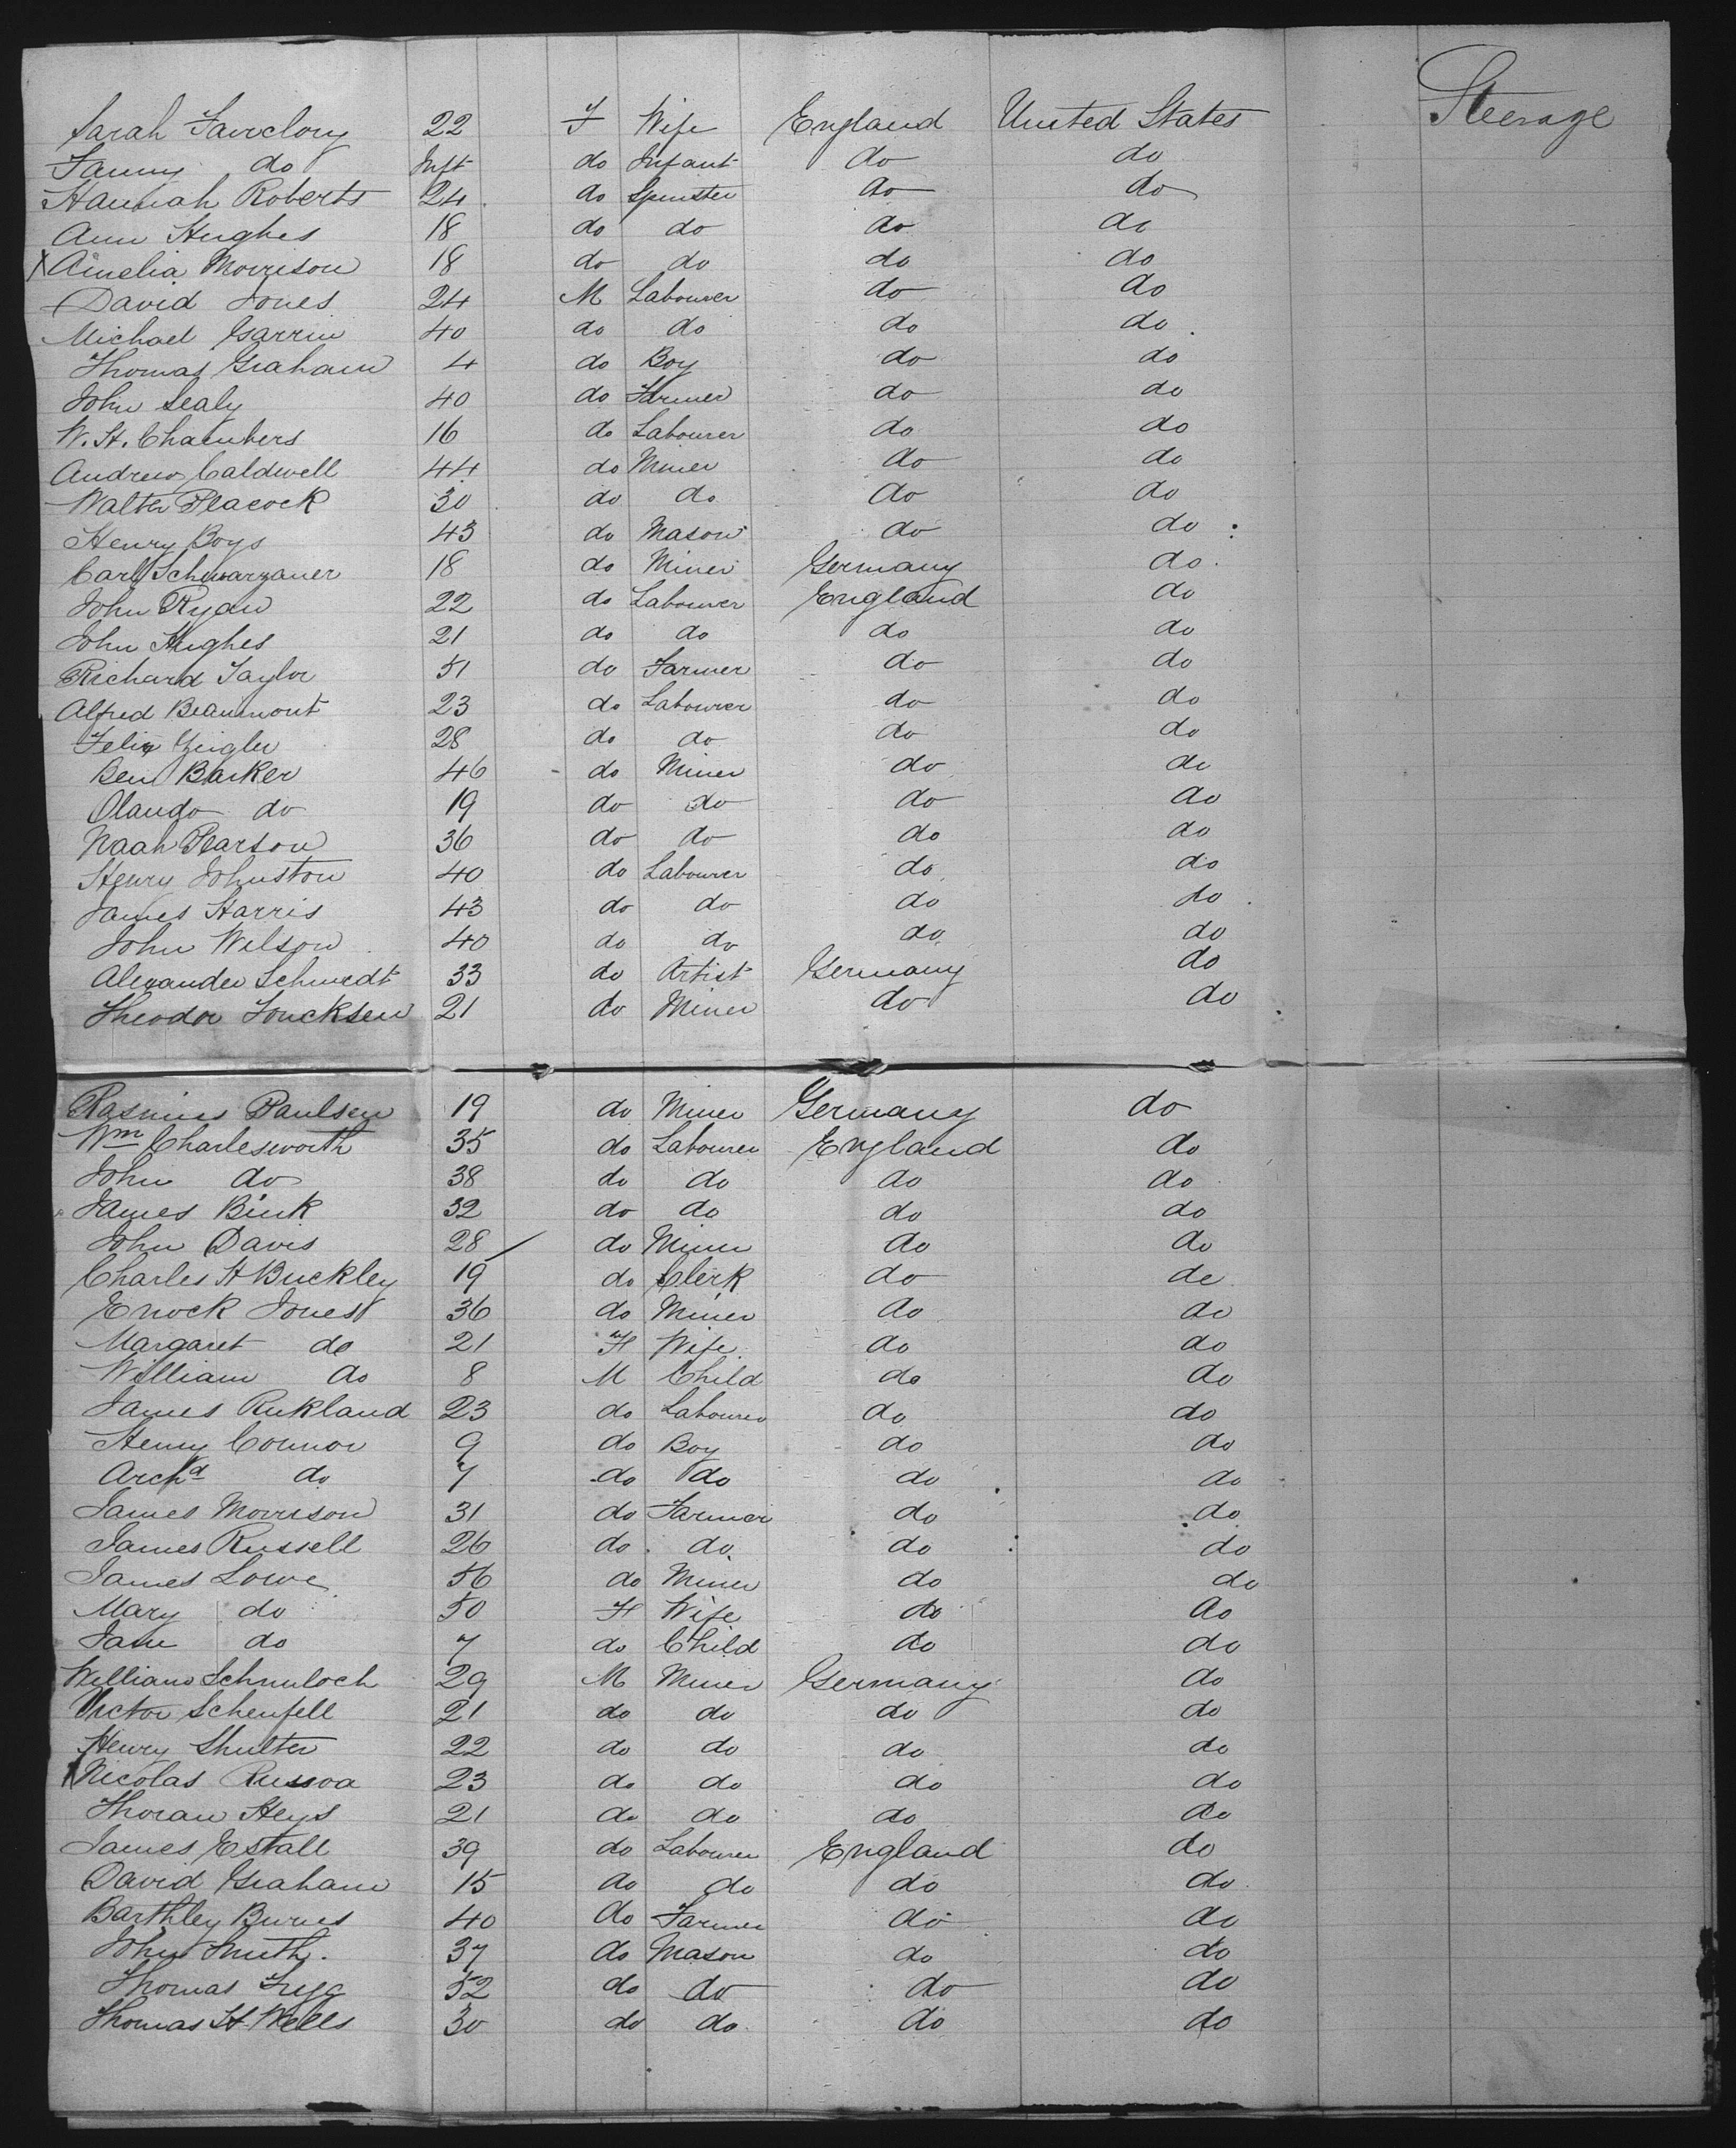 Steerage
Sarah Fairclory 22 F Wife England United States
Fanny do Inft do Infant do do
Hannah Roberts 24 do Spinster do do
Ann Hughes 18 do do do do
X Amelia Morrison 18 do do do do
David Jones 24 M Labourer do do
Michael Garrin 40 do do do do
Thomas Graham 4 do Boy do do
John Sealy 40 do Farmer do do
W. H. Chambers 16 do Labourer do do
Andrew Caldwell 44 do Miner do do
Walter Peacock 30 do do do do
Henry Boys 43 do Mason do do
Carl Schwarzaner 18 do Miner Germany do
John Ryan 22 do Labourer England do
John Hughes 21 do do do do
Richard Taylor 51 do Farmer do do
Alfred Beaumont 23 do Labourer do do
Felix Geigler 28 do do do do
Ben Barker 46 do Miner do do
Olando do 19 do do do do
Noah Pearson 36 do do do do
Henry Johnston 40 do Labourer do do
James Harris 43 do do do do
John Wilson 40 do do do do
Alexander Schmedt 33 do Artist Germany do
Theodor 21 do Miner do do
Rasmus Paulsen 19 do Miner Germany do
Wm Charlesworth 35 do Labourer England do
John do 38 do do do do
James Bink 32 do do do do
John Davis 28 do Miner do do
Charles H Buckley 19 do Clerk do do
Enock Jones 36 do Miner do do
Margaret do 21 F Wife do do
William do 8 M Child do do
James Ruckland 23 do Labourer do do
Henry Connor 9 do Boy do do
Archd do 7 do do do do
James Morrison 31 do Farmer do do
James Russell 26 do do do do
James Lowe 56 do Miner do do
Mary do 50 F Wife do do
Jane do 7 do Child do do
William Schmuloch 29 M Miner Germany do
Victor Schenfell 21 do do do do
Henry Shulter 22 do do do do
Nicolas Russoa 23 do do do do
Thoran Heys 21 do do do do
James Estall 39 do Labourer England do
David Graham 15 do do do do
Barthley Burns 40 do Farmer do do
John Smith. 37 do Mason do do
Thomas 52 do do do do
Thomas H Wells 30 do do do do